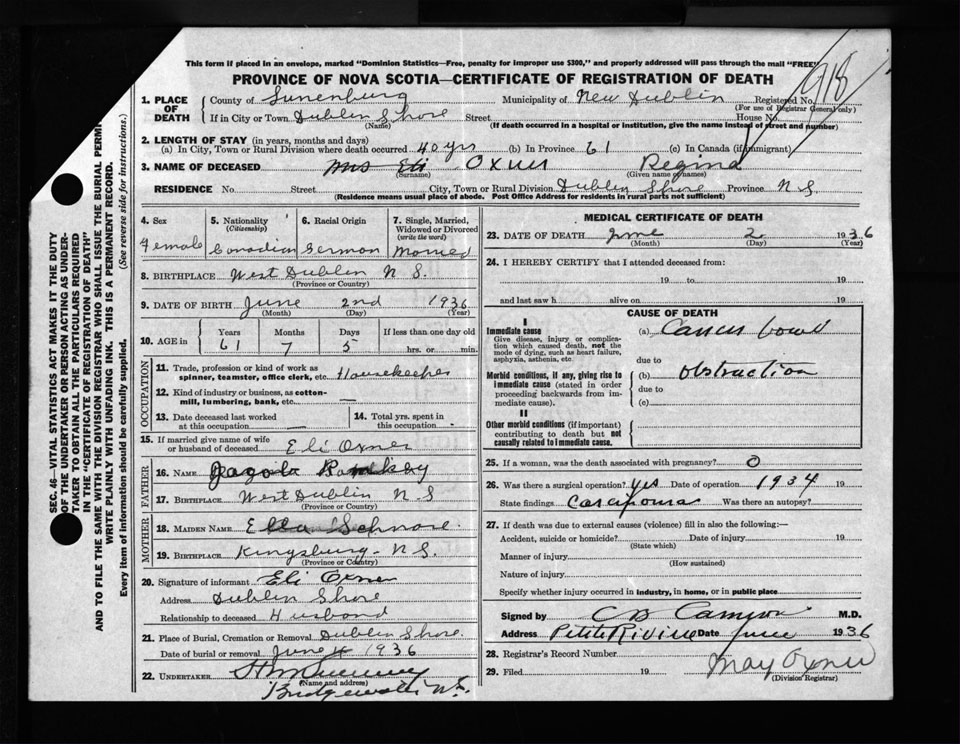 This form if placed in an envelope, marked "Dominion Statistics—Free, penalty for improper use $300," and properly addressed will pass through the mail "FREE"
PROVINCE OF NOVA SCOTIA—CERTIFICATE OF REGISTRATION OF DEATH
918
1. PLACE OF DEATH County of Lunenburg Municipality of New Dublin Registered No.
(For use of Registrar General only)
If in City or Town Dublin Shore Street House No.
(Name) (If death occurred in a hospital or institution, give the name instead of street and number)
2. LENGTH OF STAY (in years, months and days)
(a) In City, Town or Rural Division where death occurred 40 yrs (b) In Province 61 (c) In Canada (if immigrant)
3. NAME OF DECEASED Mrs Eli Oxner Regina
(Surname) (Given name or names)
RESIDENCE No. Street City, Town or Rural Division Dublin Shore Province N S
(Residence means usual place of abode. Post Office Address for residents in rural parts not sufficient)
4. Sex Female
5. Nationality (Citizenship) Canadian
6. Racial Origin German
7. Single, Married, Widowed or Divorced (write the word) Married
8. BIRTHPLACE West Dublin N S.
(Province or Country)
9. DATE OF BIRTH June 2nd 1936
(Month) (Day) (Year)
10. AGE in Years 61 Months 7 Days 5 If less than one day old hrs. or min.
OCCUPATION
11. Trade, profession or kind of work as spinner, teamster, office clerk, etc. Housekeeper
12. Kind of industry or business, as cotton-mill, lumbering, bank, etc. —
13. Date deceased last worked at this occupation —
14. Total yrs. spent in this occupation -
15. If married give name of wife or husband of deceased Eli Oxner
FATHER
16. NAME
17. BIRTHPLACE West Dublin N S
(Province or Country)
MOTHER
18. MAIDEN NAME Ella Schnare.
19. BIRTHPLACE Kingsburg - N S.
(Province or Country)
20. Signature of informant Eli Oxner
Address Dublin Shore
Relationship to deceased Husband
21. Place of Burial, Cremation or Removal Dublin Shore
Date of burial or removal June 4 1936
22. UNDERTAKER
(Name and address)
MEDICAL CERTIFICATE OF DEATH
23. DATE OF DEATH June 2 1936
(Month) (Day) (Year)
24. I HEREBY CERTIFY that I attended deceased from:
19 to 19
and last saw h alive on 19
CAUSE OF DEATH
I
Immediate cause
Give disease, injury or complication which caused death, not the mode of dying, such as heart failure, asphyxia, asthenia, etc.
(a) Cancer bowel
due to
Morbid conditions, if any, giving rise to immediate cause (stated in order proceeding backwards from immediate cause).
(b) obstruction
due to
(c)
II
Other morbid conditions (if important) contributing to death but not causally related to immediate cause.
25. If a woman, was the death associated with pregnancy? 0
26. Was there a surgical operation? yes Date of operation 1934 19
State findings Carcinoma Was there an autopsy?
27. If death was due to external causes (violence) fill in also the following:—
Accident, suicide or homicide? Date of injury 19
(State which)
Manner of injury
(How sustained)
Nature of injury
Specify whether injury occurred in industry, in home, or in public place
Signed by M.D.
Address Petite Riviere Date June 1936
28. Registrar's Record Number
29. Filed 19 May Oxner
(Division Registrar)
SEC. 46—VITAL STATISTICS ACT MAKES IT THE DUTY
OF THE UNDERTAKER OR PERSON ACTING AS UNDER-
TAKER TO OBTAIN ALL THE PARTICULARS REQUIRED
IN THE "CERTIFICATE OF REGISTRATION OF DEATH"
AND TO FILE THE SAME WITH THE DIVISION REGISTRAR WHO SHALL ISSUE THE BURIAL PERMI
WRITE PLAINLY WITH UNFADING INK. THIS IS A PERMANENT RECORD.
Every item of information should be carefully supplied. (See reverse side for instructions.)